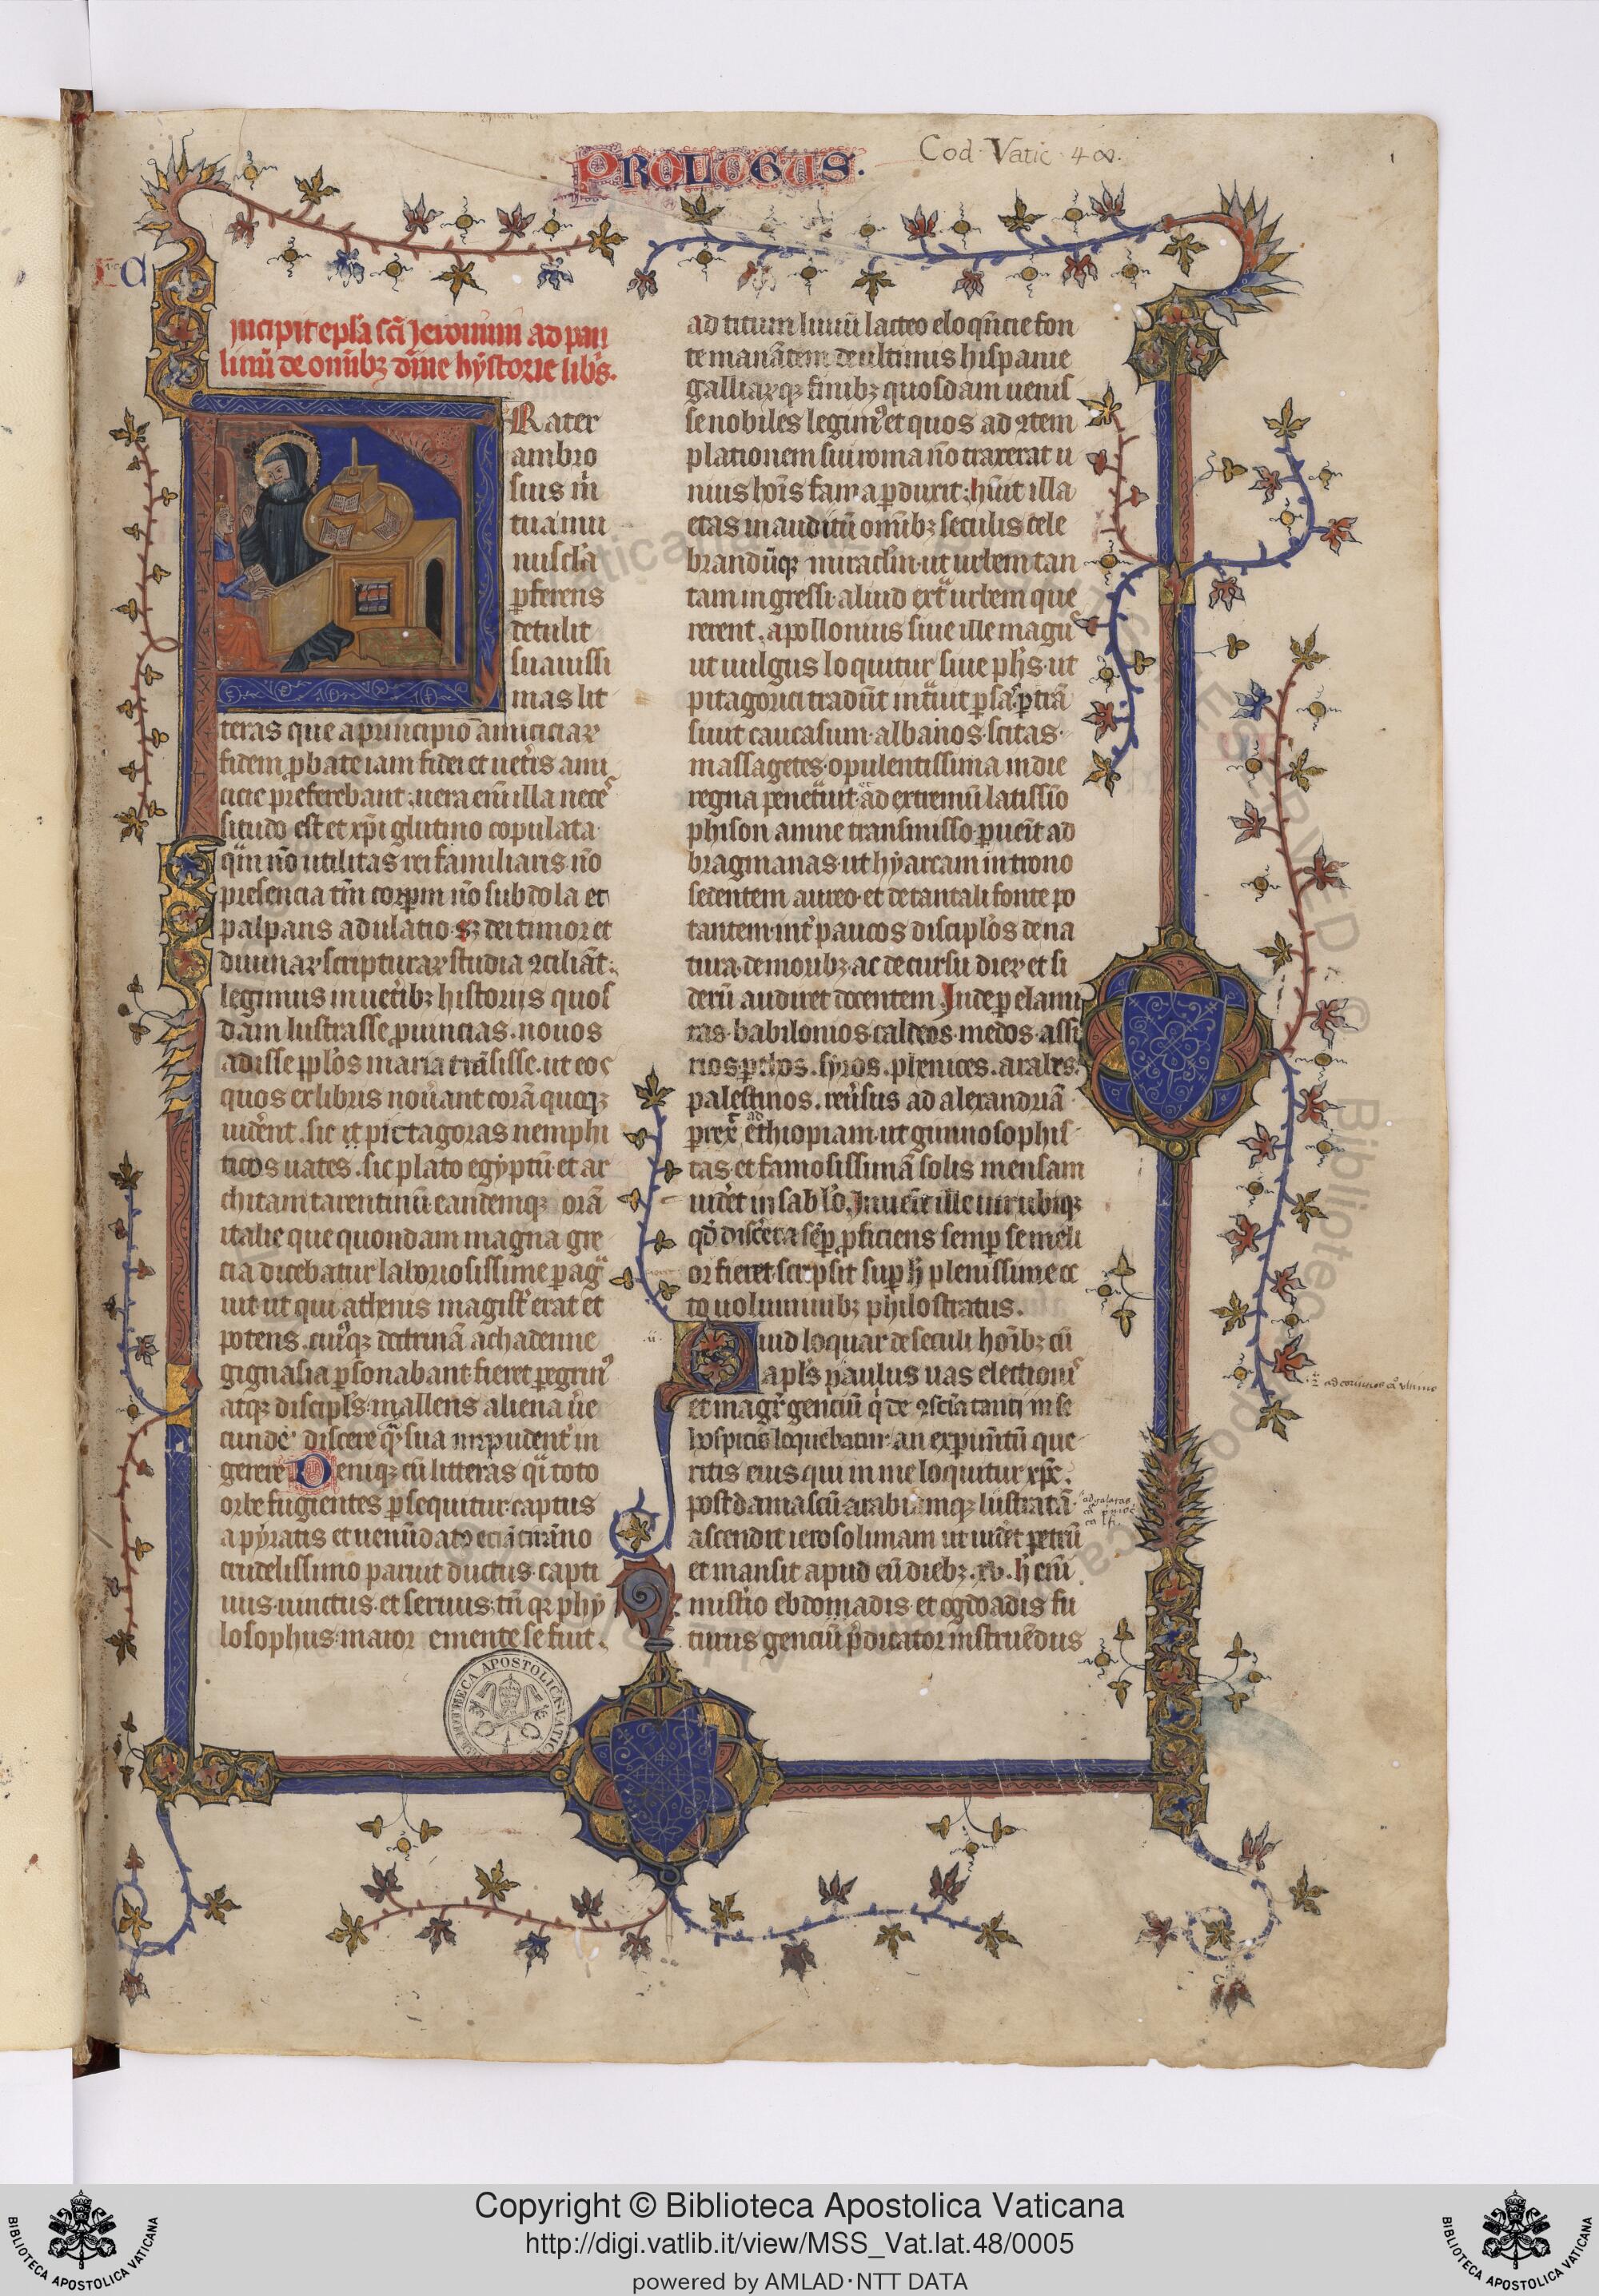 PROLOGUS.
Cod. Vatic. 48.
1
Incipit epl̄a sc̄i Jeronimi ad pau
linū de om̄ibꝫ dīuine hystorie libris.
Frater
ambro
sius m̄
tua mu
nuscl̄a
ꝑferens
detulit
suauissi
mas lit
teras que a principio amiciciaꝝ
fidem ꝓbate iam fidei et uet̄is ami
cicie preferebant. uera em̄ illa nece
situdo est et xp̄i glutino copulata
qͣm nō utilitas rei familiaris nō
presencia tm̄ corpꝝm nō subdola et
palpans adulatio sꝫ dei timor et
diuinaꝝ scripturaꝝ studia ꝯciliāt.
legimus in uet̄ibꝫ historiis quos
dam lustrasse ꝓuincias. nouos
adisse ppl̄os maria trāsisse. ut eos
quos ex libris nouāt corā quoqꝫ
uidēent. sic et pictagoras nemphi
ticos uates. sic plato egyptū et ar
chitam tarentinū. eandemqꝫ orā
italie que quondam magna gre
cia dicebatur laboriosissime ꝑagͣ
uit. ut qui athenis magist̄ erat et
potens. cui᷒qꝫ doctrinā achademie
gignasia ꝑsonabant fieret ꝑegrin᷒
atqꝫ discipl̄s. mallens aliena ūe
cunde discere qͣ sua impudent̄ in
gerere. Deniqꝫ cū litteras qͣi toto
orbe fugientes ꝑsequitur. captus
a pyratis et uenūdatꝰ eciā tirāno
crudelissimo paruit. ductus. capti
uus. uinctus. et seruus. tn̄ qꝛ phy
losophus. maior emente se fuit.
ad titum liuiū lacteo eloqn̄cie fon
te manātem de ultimis hispanie
galliaꝝqꝫ finibꝫ quosdam uenis
se nobiles legim᷒ et quos ad ꝯtem
plationem sui roma nō traxerat u
nius hoīs fama ꝑduxit. hūit illa
etas inauditū om̄ibꝫ seculis cele
brandūqꝫ miracl̄m. ut urbem tan
tam ingressi. aliud ext̄ urbem que
rerent. apollonius siue ille magu᷒
ut uulgus loquitur siue ph̄s. ut
pitagorici tradūt int̄uit ꝑsas. ꝑtrā
siuit caucasum. albanos. scitas.
massagetes. opulentissima indie
regna penet̄uit. ad extremū latissīo
phison amne transmisso. ꝑueīt ad
bragmanas. ut hyarcam in trono
sedentem aureo. et de tantali fonte po
tantem. int̄ paucos discipl̄os de na
tura. de moribꝫ. ac de cursu dieꝝ et si
derū audiret docentem. Inde ꝑ elami
tas. babilonios. caldeos. medos. assi
rios. ꝑthos. syros. phenices. arabes.
palestinos. reūsus ad alexandriā
ꝑrexͭ ad ethiopiam. ut gimnosophis
tas. et famosissimā solis mensam
uidēt in sablo. Inuenit ille uir ubiqꝫ
qd̄ discēt. a sēꝑ ꝓficiens semꝑ se meli
or fieret. scripsit suꝑ h̄ plenissime oc
to uoluminibꝫ philostratus.
.ii. Quid loquar de seculi hoībꝫ cū
apl̄s paulus uas electionis
et magr̄ genciū qͥ de ꝯscīa tanti in se
hospicis loquebatur. an exꝑimtū que
ritis eius qui in me loquitur xp̄c.
post damascū. arabiamqꝫ lustratā.
ascendit ierosolimam ut uidēt petrū
et mansit apud eū diebꝫ. xv. h̄ em̄
misterio ebdomadis. et ogdoadis fu
turus genciū p̄dicator instruēdus
BIBLIOTHECA APOSTOLICA VATICANA
Copyright © Biblioteca Apostolica Vaticana
http://digi.vatlib.it/view/MSS_Vat.lat.48/0005
powered by AMLAD·NTT DATA
BIBLIOTECA APOSTOLICA VATICANA
BIBLIOTECA APOSTOLICA VATICANA